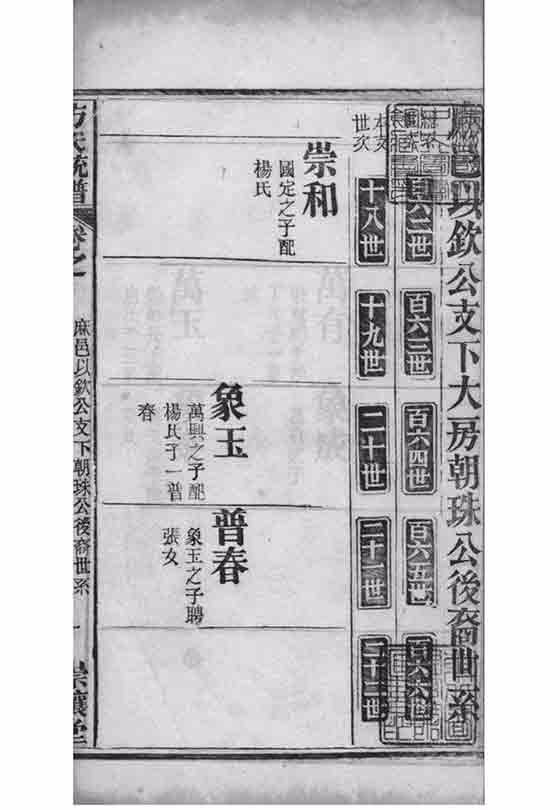 麻邑以欽公支下大房朝珠公後裔世系
百六二世
百六三世
百六四世
百六五世
百六六世
本支
世次
十八世
十九世
二十世
二十一世
二十二世
崇和
國定之子配
楊氏
象玉
萬興之子配
楊氏子一普
春
普春
象玉之子聘
張女
方氏統譜
卷之一
麻邑以欽公支下朝珠公後裔世系
一
崇讓堂